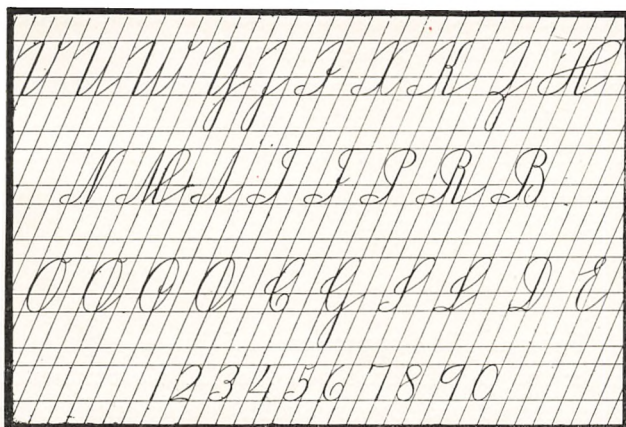 V U W Y J I X K Z H
N M A T F P R B
O O O O C G S L D E
1 2 3 4 5 6 7 8 9 0